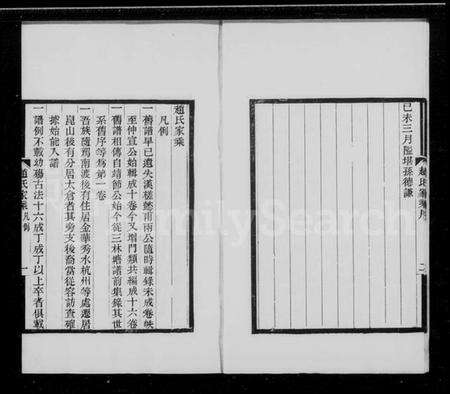 己未三月隘堪孫德謙
趙氏家乘序
二
趙氏家乘
凡例
一舊譜早已遺失漢槎總甫兩公隨時輯錄未成卷帙
至仲宣公始輯成十卷今又增門類共編成十六卷
一舊譜相傳自靖節公始今從三林塘譜前集錄其世
系舊序等爲第一卷
一吾族隨駕南渡後有住居金華秀水杭州等處遷居
崑山後有分居太倉者其旁支後裔當從容訪查確
據始能入譜
一譜例不載幼殤古法十六成丁成丁以上卒者俱載
趙氏家乘凡例
一
FamilySearch